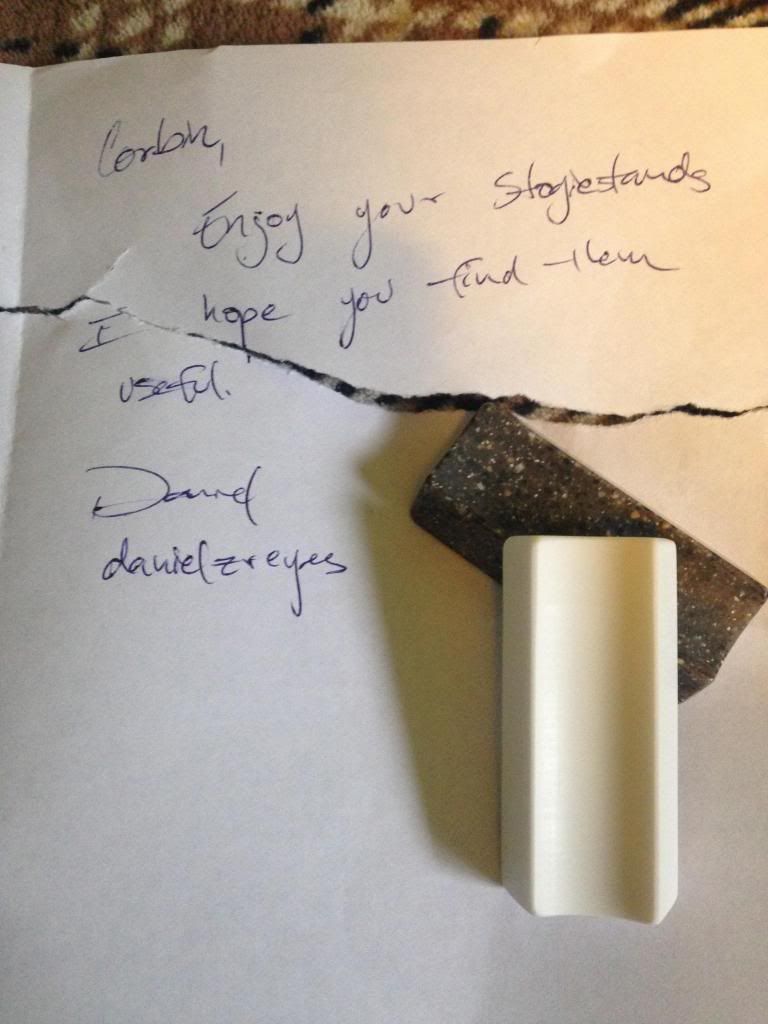 Corbin,
Enjoy your Stogiestands
I hope you find them
useful.
Daniel
danielzreyes